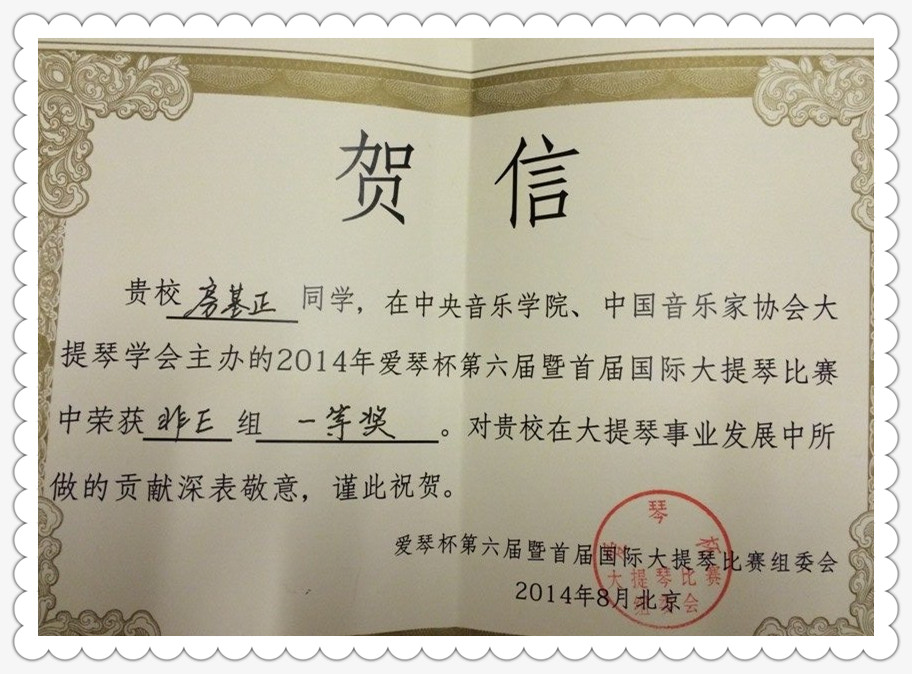 贺 信
贵校 房基正 同学，在中央音乐学院、中国音乐家协会大
提琴学会主办的2014年爱琴杯第六届暨首届国际大提琴比赛
中荣获 非E 组 一等奖 。对贵校在大提琴事业发展中所
做的贡献深表敬意，谨此祝贺。
爱琴杯第六届暨首届国际大提琴比赛组委会
2014年8月北京
琴
爱 杯
大提琴比赛
组委会